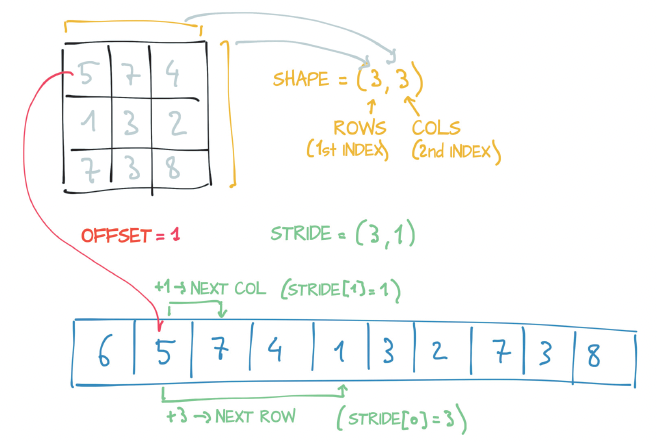 5 7 4
1 3 2
7 3 8
SHAPE = (3,3)
ROWS
(1st INDEX)
COLS
(2nd INDEX)
OFFSET = 1
STRIDE = (3,1)
+1 → NEXT COL (STRIDE[1]=1)
6 5 7 4 1 3 2 7 3 8
+3 → NEXT ROW (STRIDE[0]=3)